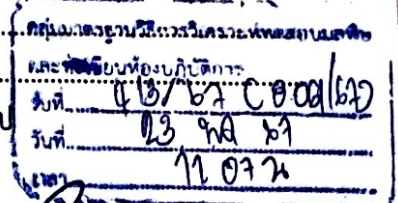 กลุ่มมาตรฐานวิธีการวิเคราะห์ทดสอบมลพิษ
และทะเบียนห้องปฏิบัติการ
รับที่ 413/67
วันที่ 23 พค 67
เวลา 11 07 น